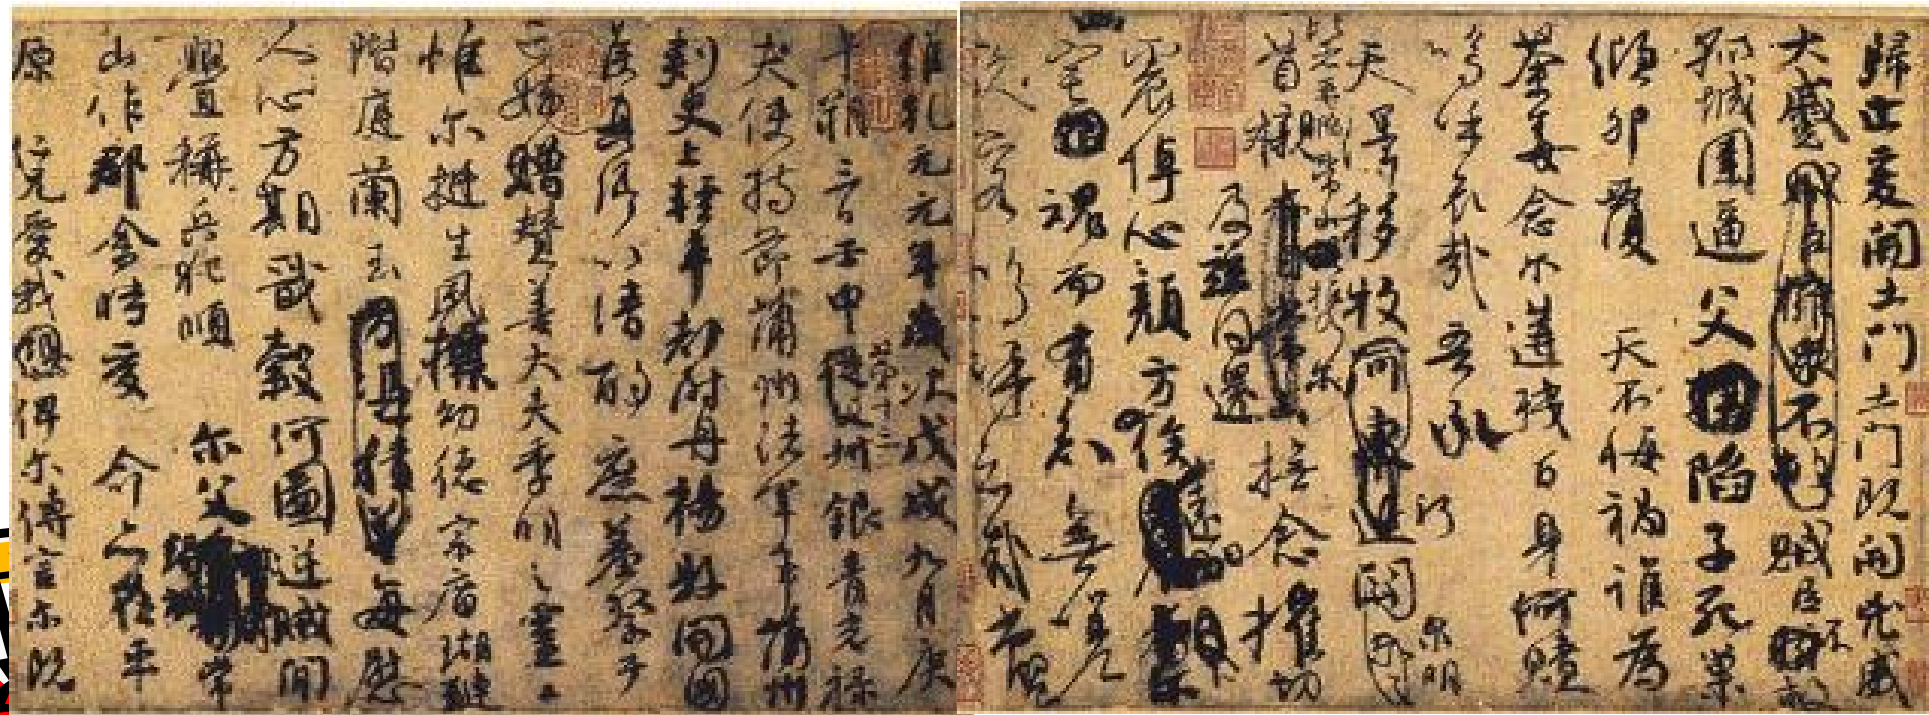 維乾元元年歲次戊戌九月庚
午朔三日壬申第十三銀青光祿
夫使持節蒲州諸軍事蒲州
刺史上輕車都尉丹楊縣開國
侯真卿以清酌庶羞祭于
亡姪贈贊善大夫季明之靈曰
惟爾挺生夙標幼德宗廟瑚璉
階庭蘭玉每慰
人心方期戩穀何圖逆賊間
釁稱兵犯順爾父常
山作郡余時受命亦在平
原仁兄愛我俾爾傳言爾既
歸止爰開土門土門既開兇威
大蹙賊臣不救
孤城圍逼父陷子死巢
傾卵覆天不悔禍誰為
荼毒念爾遘殘百身何贖
嗚呼哀哉吾承
天澤移牧河關爾明
比者常山攜爾
首櫬及茲同還撫念摧切
震悼心顏方俟遠
宅魂而有知無嗟
久客嗚呼哀哉尚饗